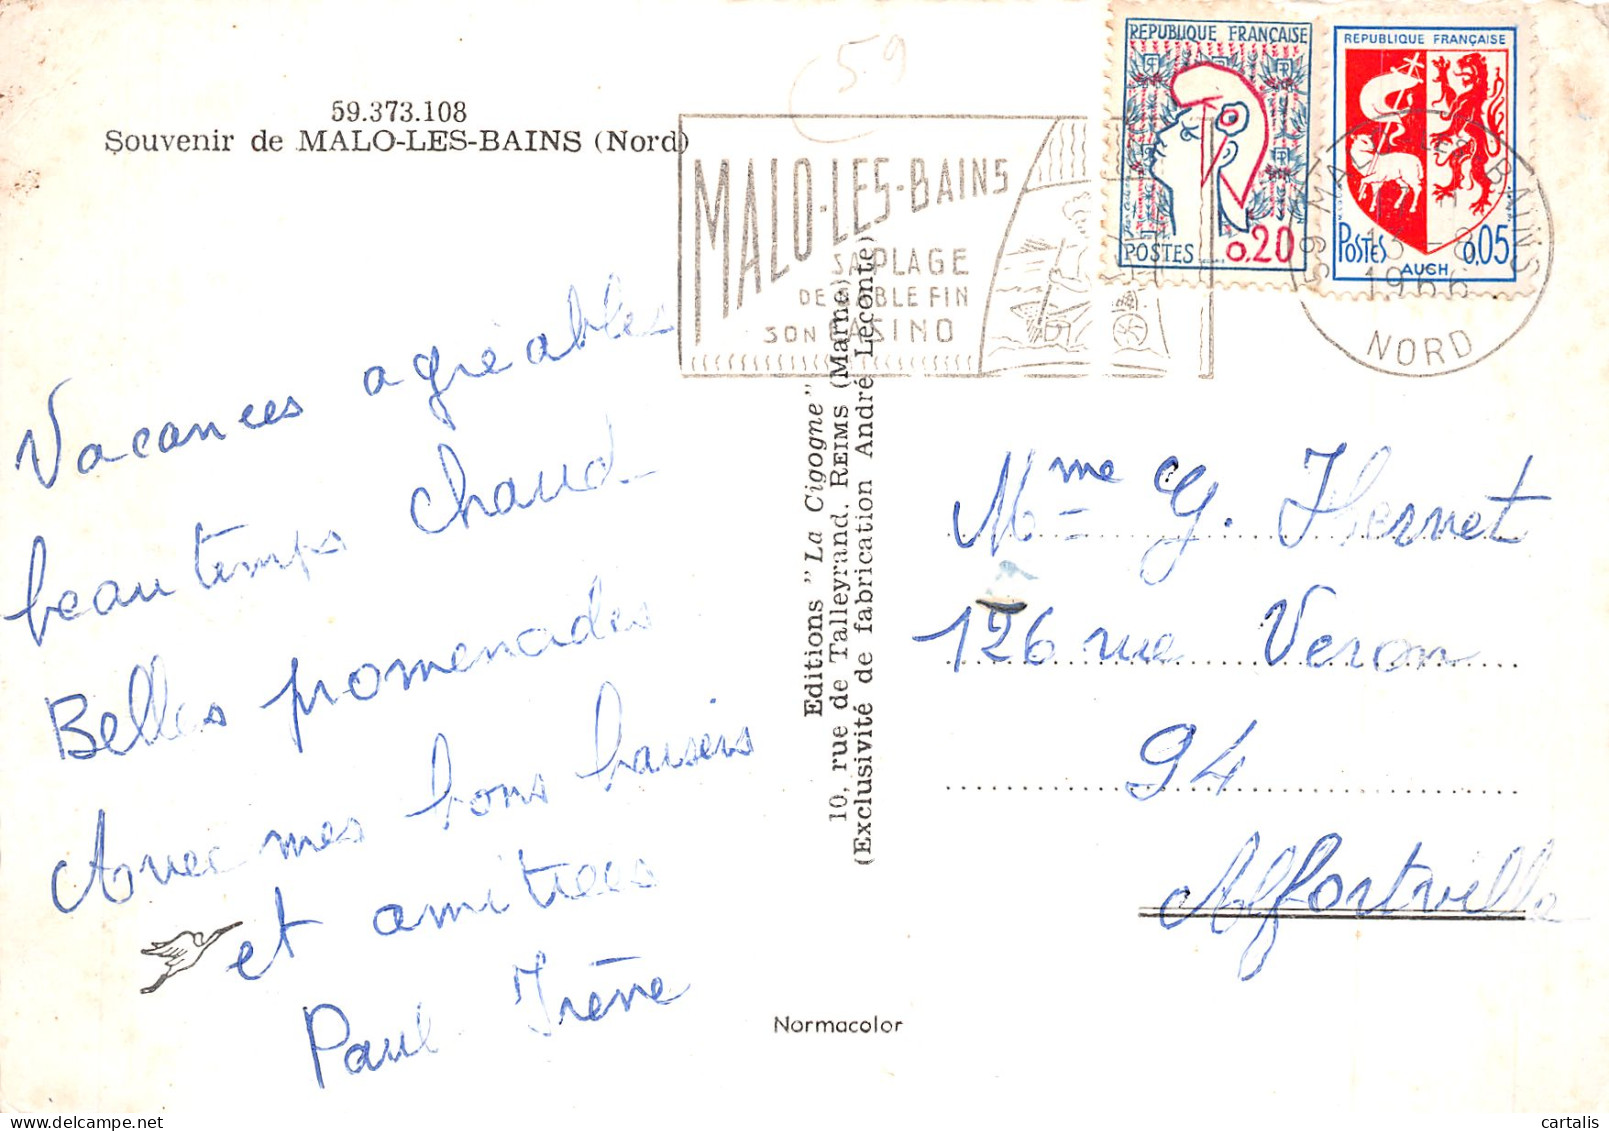 59.373.108
Souvenir de MALO-LES-BAINS (Nord)
59
MALO-LES-BAINS
SA PLAGE
DE SABLE FIN
SON CASINO
REPUBLIQUE FRANÇAISE
POSTES 0.20
REPUBLIQUE FRANÇAISE
POSTES 0,05
AUCH
59 MALO LES BAINS
13 - 8
1966
NORD
Vacances agréables
beau temps chaud
Belles promenades
Avec mes bons baisers
et amitiées
Paul Irène
Editions "La Cigogne"
10, rue de Talleyrand. REIMS (Marne)
(Exclusivité de fabrication André Leconte)
Mme G. Hernet
126 rue Veron
94
Alfortville
Normacolor
cartalis